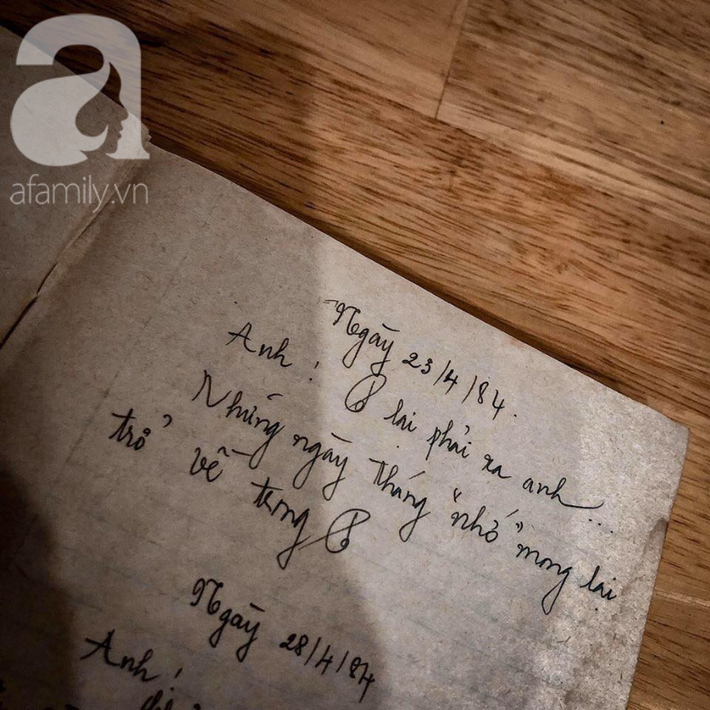 a
afamily.vn
Ngày 23/4/84.
Anh! lại phải xa anh...
Những ngày tháng "nhớ" mong lại
trở về
Ngày 28/4/84
Anh!